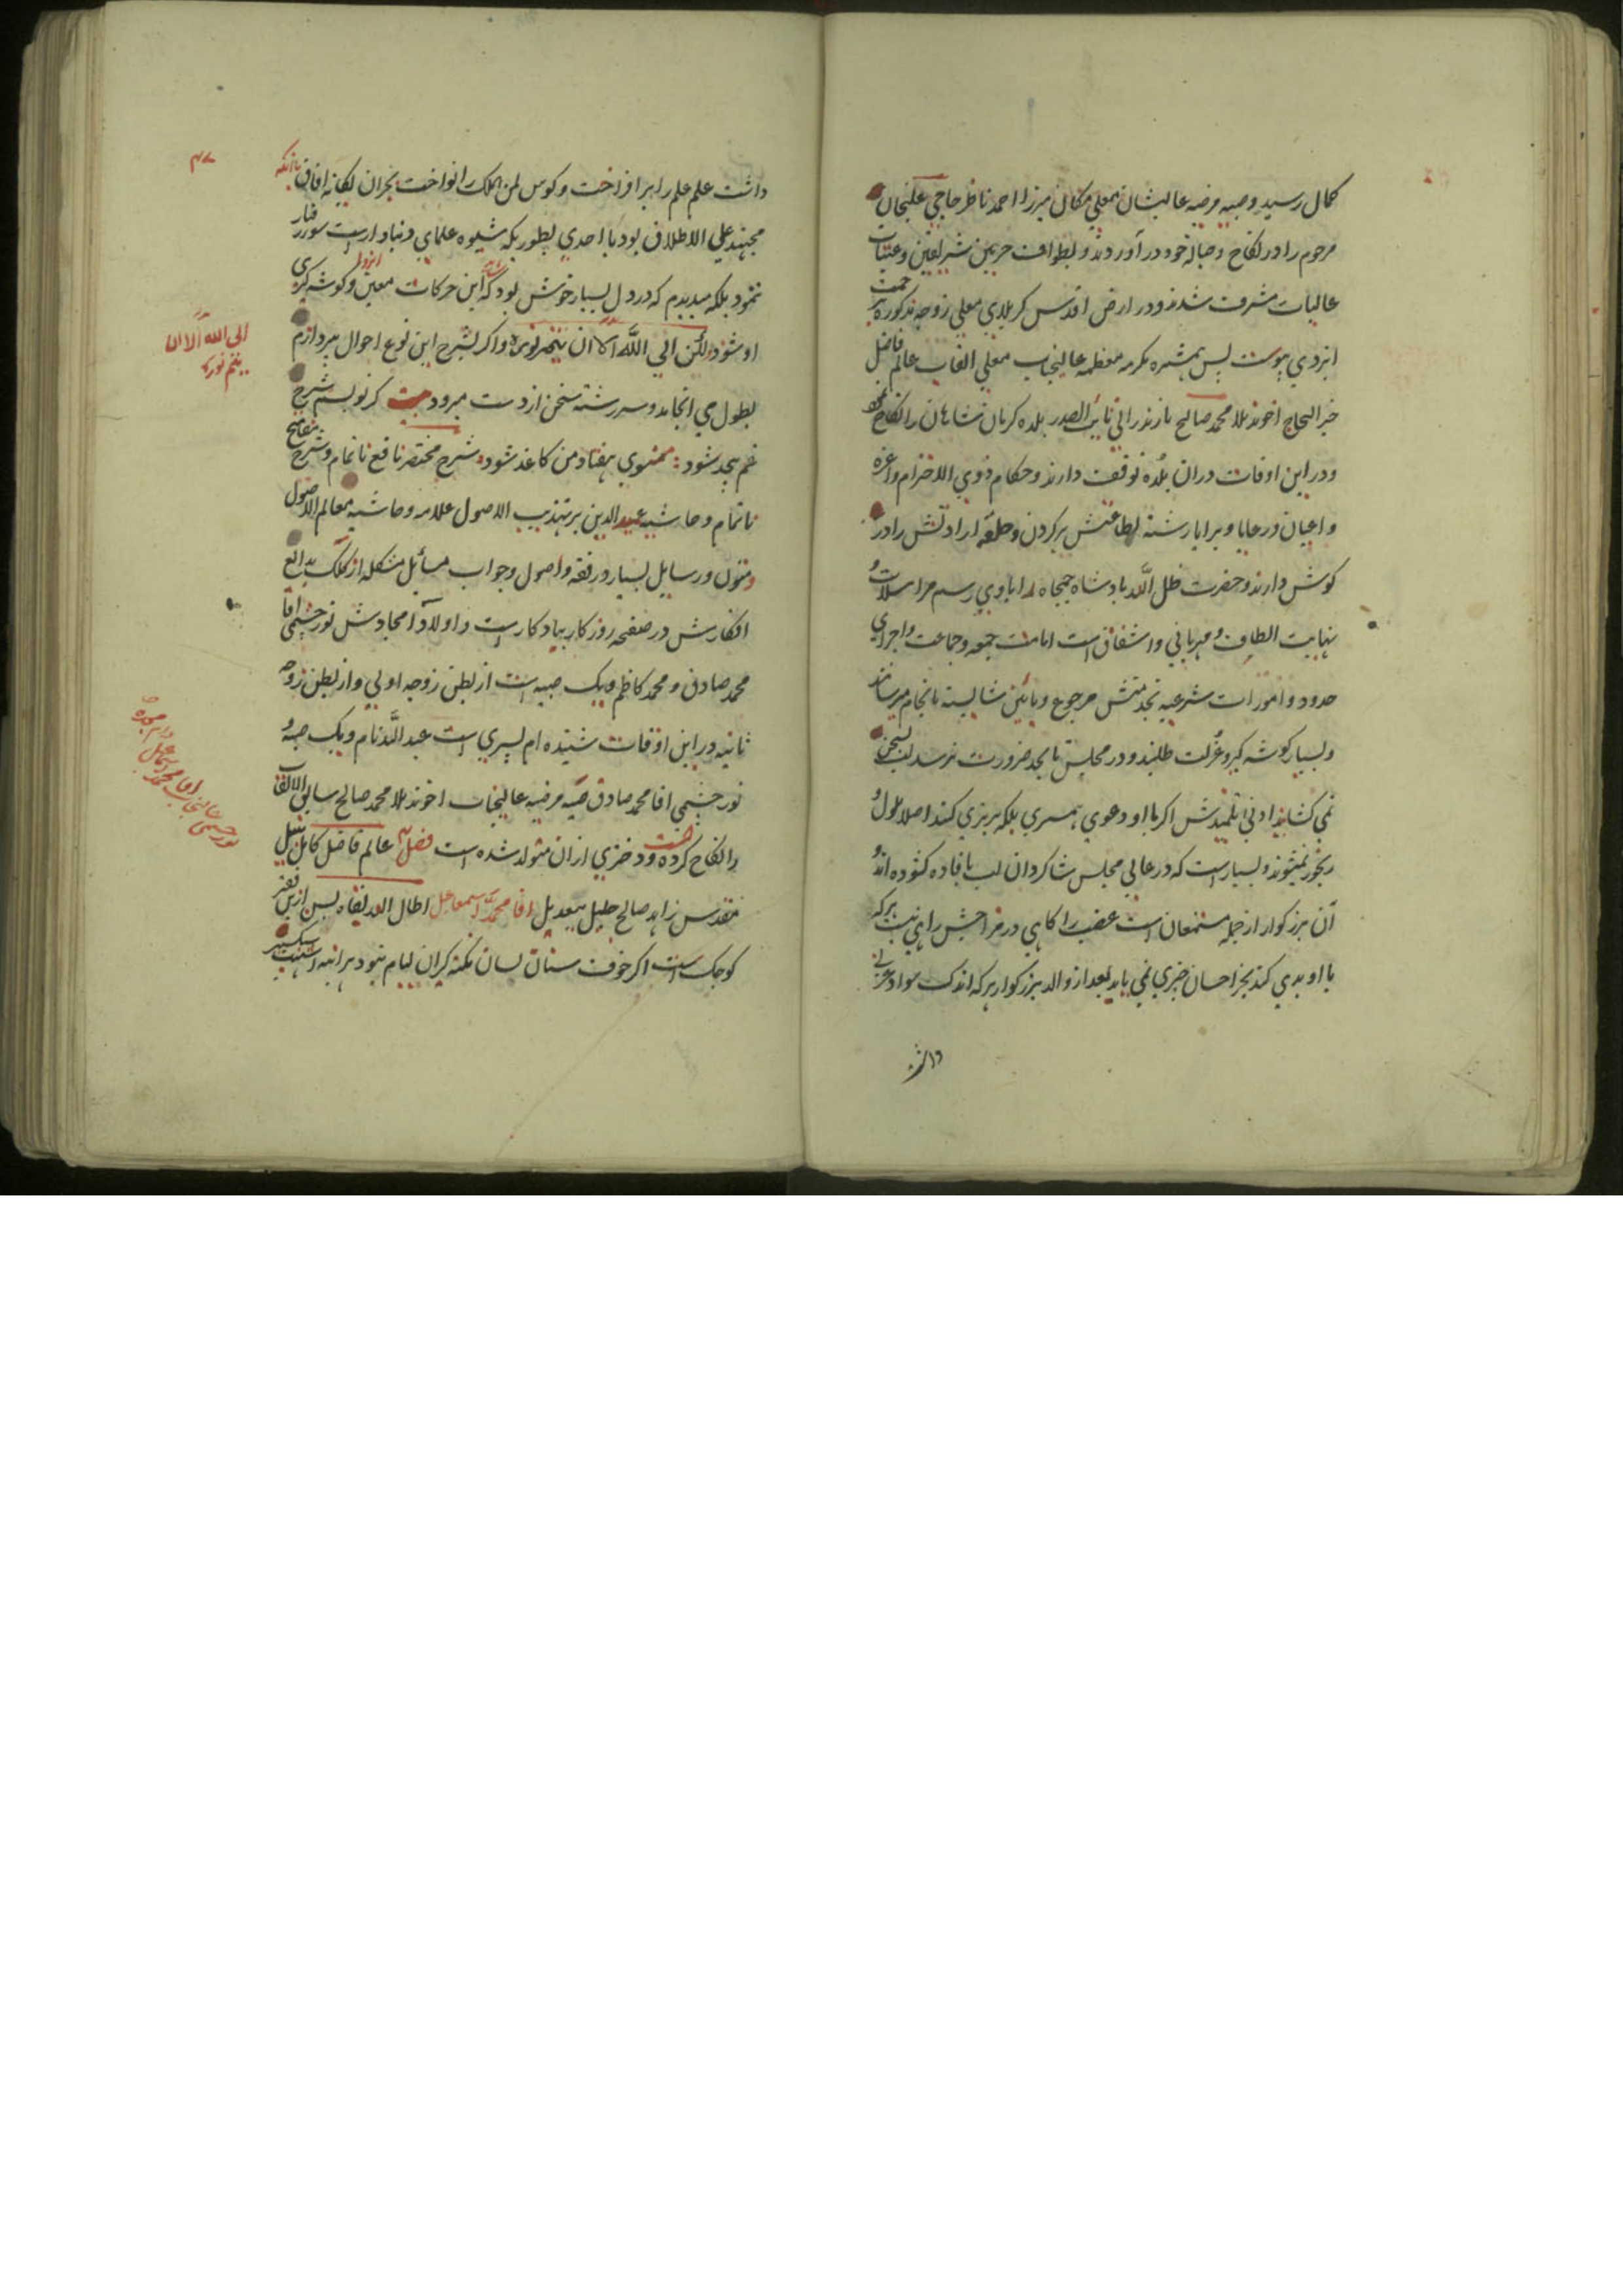 کمال رسید وصبیه مرضیه عالیشان معلی مکان میرزا احمد ناظر حاجی علیخان
مرحوم را در نکاح وحباله خود در آوردند و بطواف حرمین شریفین وعتبات
عالیات مشرف شدند ودر ارض اقدس کربلای معلی زوجه مذکوره برحمت
ایزدی پیوست پس همشیره مکرمه معظمه عالیجناب معلی القاب عالم فاضل
خیر الحاج اخوند ملا محمد صالح مازندرانی نایب الصدر بلده کرمان شاهان را نکاح
ودر این اوقات دران بلده توقف دارند وحکام ذوی الاحترام واعزه
واعیان ورعایا وبرایا رشته اطاعتش بر کردن وحلقه ارادتش را در
کوش دارند وحضرت ظل الله بادشاه جمجاه را باوی رسم مراسلات و
نهایت الطاف و مهربانی واشفاق است امامت جمعه وجماعت واجرای
حدود وامورات شرعیه بخدمتش مرجوع وبائین شایسته بانجام میرسانند
وبسیار کوشه کیر وعزلت طلبند ودر مجلس تا بحد ضرورت نرسد لب بسخن
نمی کشایند ادنی تلمیذش اکر با او دعوی همسری بلکه برتری کند اصلا ملول و
رنجور نمیشوند وبسیار است که در عالی مجلس شاکردان لب بافاده کشوده اند و
آن بزرکوار از جمله مستمعان است غضب را کاهی در مزاجش راهی نیست هرکه
با او بدی کند بجز احسان چیزی نمی یابد بعد از والد بزرکوار هرکه اندک سواد عربی
داشت
۴۷
داشت علم علم را بر افراخت وکوس لمن الملک را نواخت بجز ان یکانه افاق با آنکه
مجتهد علی الاطلاق بود با احدی بطوریکه شیوه علمای دنیادار است سورفتار
ننمود بلکه میدیدم که در دل بسیار خوش بود که این حرکات معین وکوشه کیری
او شود ولکن ابی الله الا ان یتم نوره واکر بشرح این نوع احوال پردازم
بطول می انجامد وسررشته سخن از دست میرود بیت کر نویسم شرح
غم بیحد شود : مثنوی هفتاد من کاغذ شود شرح مختصر نافع ناتمام وشرح مفاتیح
ناتمام وحاشیه عمید الدین بر تهذیب الاصول علامه وحاشیه معالم الاصول
ومتون ورسایل بسیار در فقه واصول وجواب مسائل مشکله از کلک بدائع
افکارش در صفحه روزکار بیادکار است واولاد امجادش نور چشمی اقا
محمد صادق و محمد کاظم ویک صبیه است از بطن زوجه اولی واز بطن زوجه
ثانیه در این اوقات شنیده ام پسری است عبد الله نام ویک صبیه و
نور چشمی اقا محمد صادق صبیه مرضیه عالیجناب اخوند ملا محمد صالح سابق الالقاب
را نکاح کرده ودختری ازان متولد شده است فصل عالم فاضل کامل نبیل
مقدس زاهد صالح جلیل بیعدیل اقا محمد اسمعیل اطال الله بقاه پس ازین فقیر
کوچک است اکر خوف سنان لسان نکته کیران لیام نبود هر اینه
ابی الله الا ان
یتم نوره
نور چشمی
عالیجناب
اقا محمد اسماعیل
دام مجده